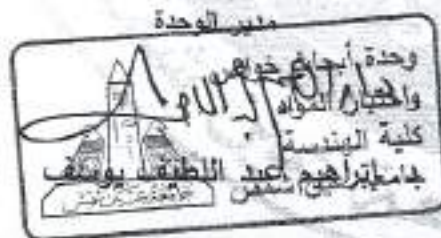 مدير الوحدة
وحدة أبحاث خواص
واختبار المواد
كلية الهندسة
إبراهيم عبد اللطيف يوسف
جامعة عين شمس